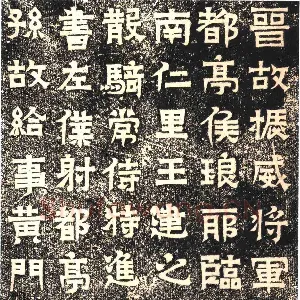 晉故振威将軍
都亭侯琅耶臨
南仁里王建之
散騎常侍特進
書左僕射都亭
孫故給事黃門